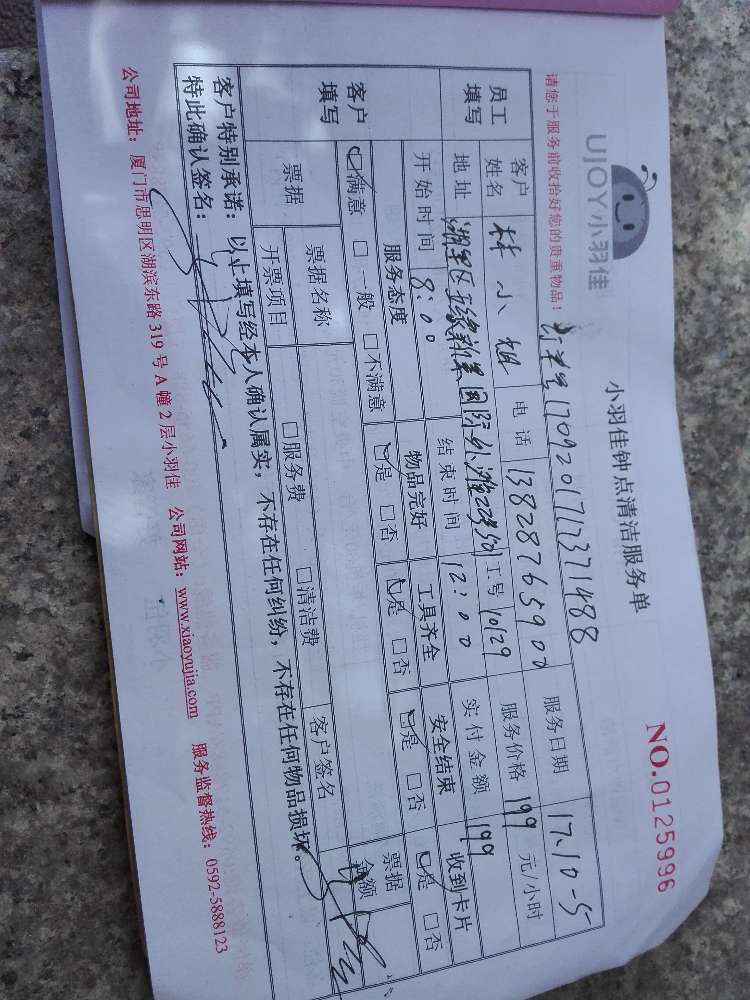 UJOY小羽佳
小羽佳钟点清洁服务单
NO.0125996
请您于服务前收拾好您的贵重物品!
1709201717371488
员工填写
客户姓名 林小姐 电话 13828765900 服务日期 17.10-5
地址 国际外滩 工号 10129 服务价格 199 元/小时
开始时间 8:00 结束时间 12:00 实付金额 199
客户填写
服务态度 物品完好 工具齐全 安全结束 收到卡片
☑满意 □一般 □不满意 ☑是 □否 ☑是 □否 ☑是 □否 ☑是 □否
票据 票据名称 □服务费 □清洁费 客户签名 票据金额
开票项目
客户特别承诺:以上填写经本人确认属实,不存在任何纠纷,不存在任何物品损坏。
特此确认签名:
公司地址:厦门市思明区湖滨东路 319 号 A 幢 2 层小羽佳 公司网站:www.xiaoyujia.com 服务监督热线:0592-5888123